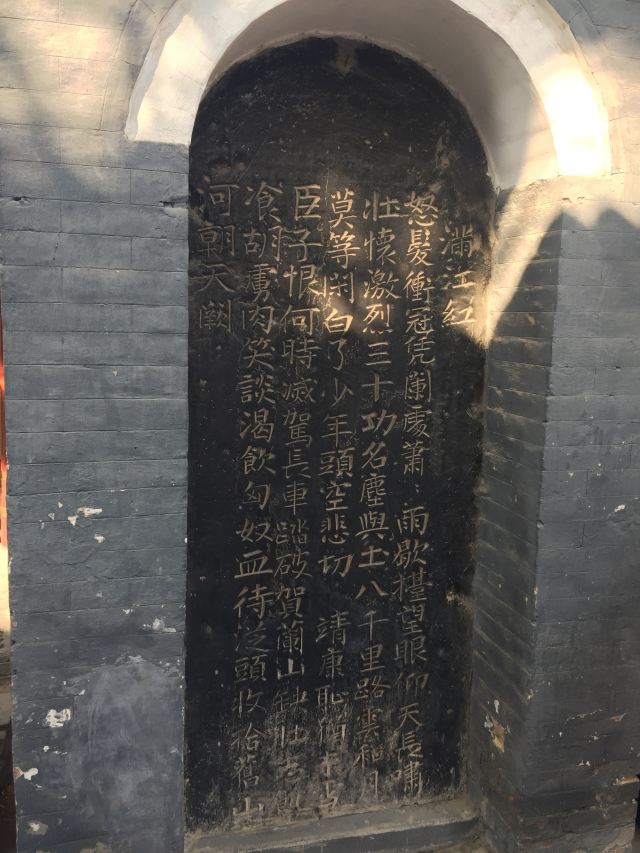 滿江紅
怒髮衝冠凭闌處蕭:雨歇擡望眼仰天長嘯
壯懷激烈三十功名塵與土八千里路雲和月
莫等閑白了少年頭空悲切 靖康恥猶未雪
臣子恨何時滅駕長車踏破賀蘭山缺壯志飢
飡胡虜肉笑談渴飲匈奴血待從頭收拾舊山
河朝天闕